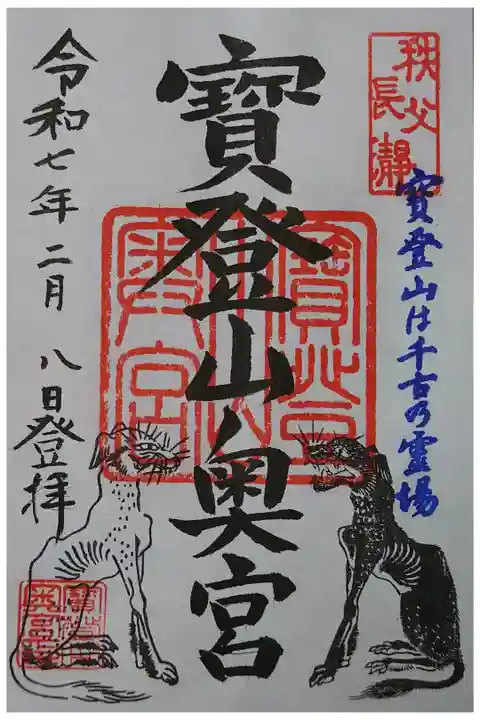 秩父
長瀞
寳登山は千古の霊場
寳登山奥宮
寳登山
奥宮
令和七年二月八日登拝